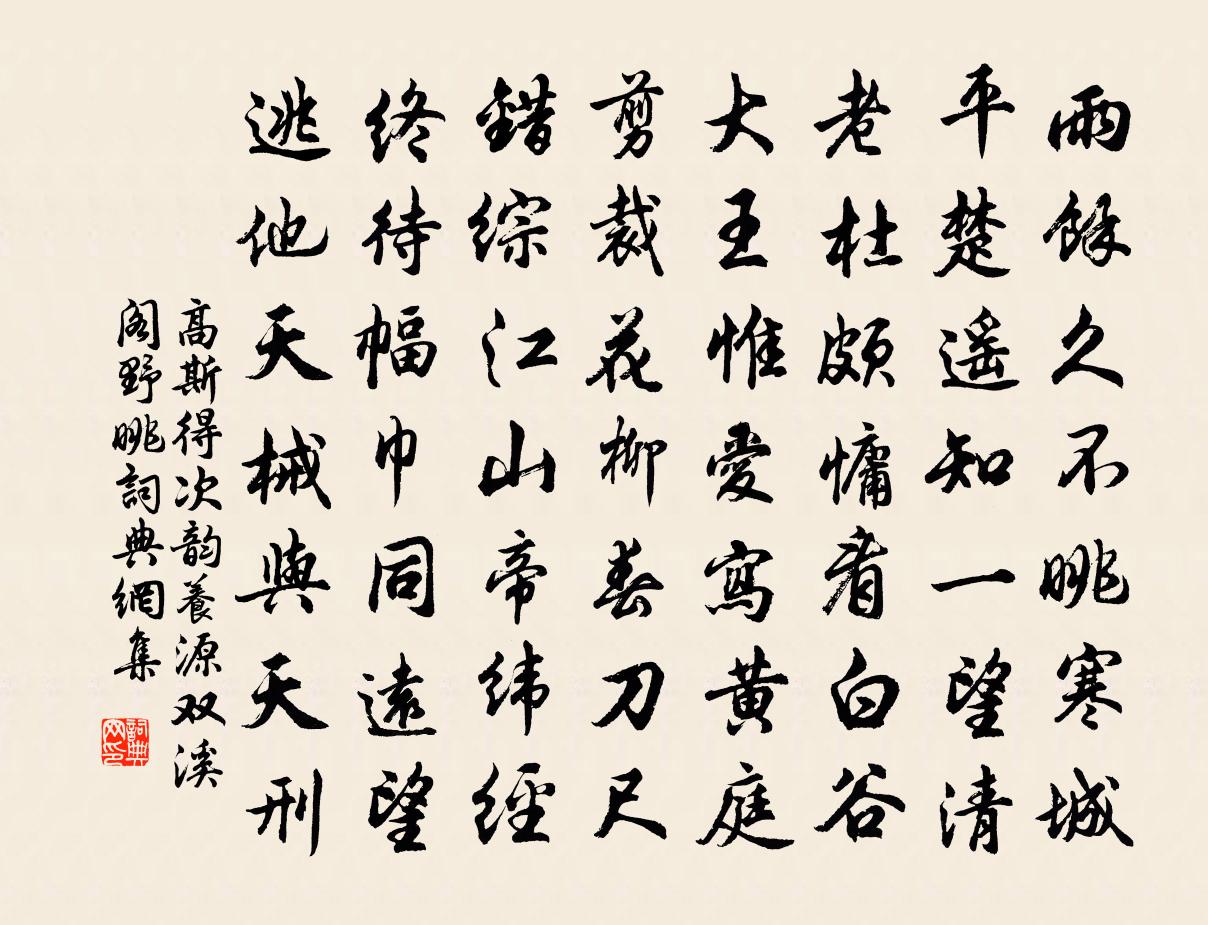 雨餘久不眺寒城
平楚遥知一望清
老杜頗慵看白谷
大王惟愛寫黄庭
剪裁花柳春刀尺
錯綜江山帝緯經
終待幅巾同遠望
逃他天械與天刑
高斯得次韵養源双溪
阁野眺詞典網集
詞典网印